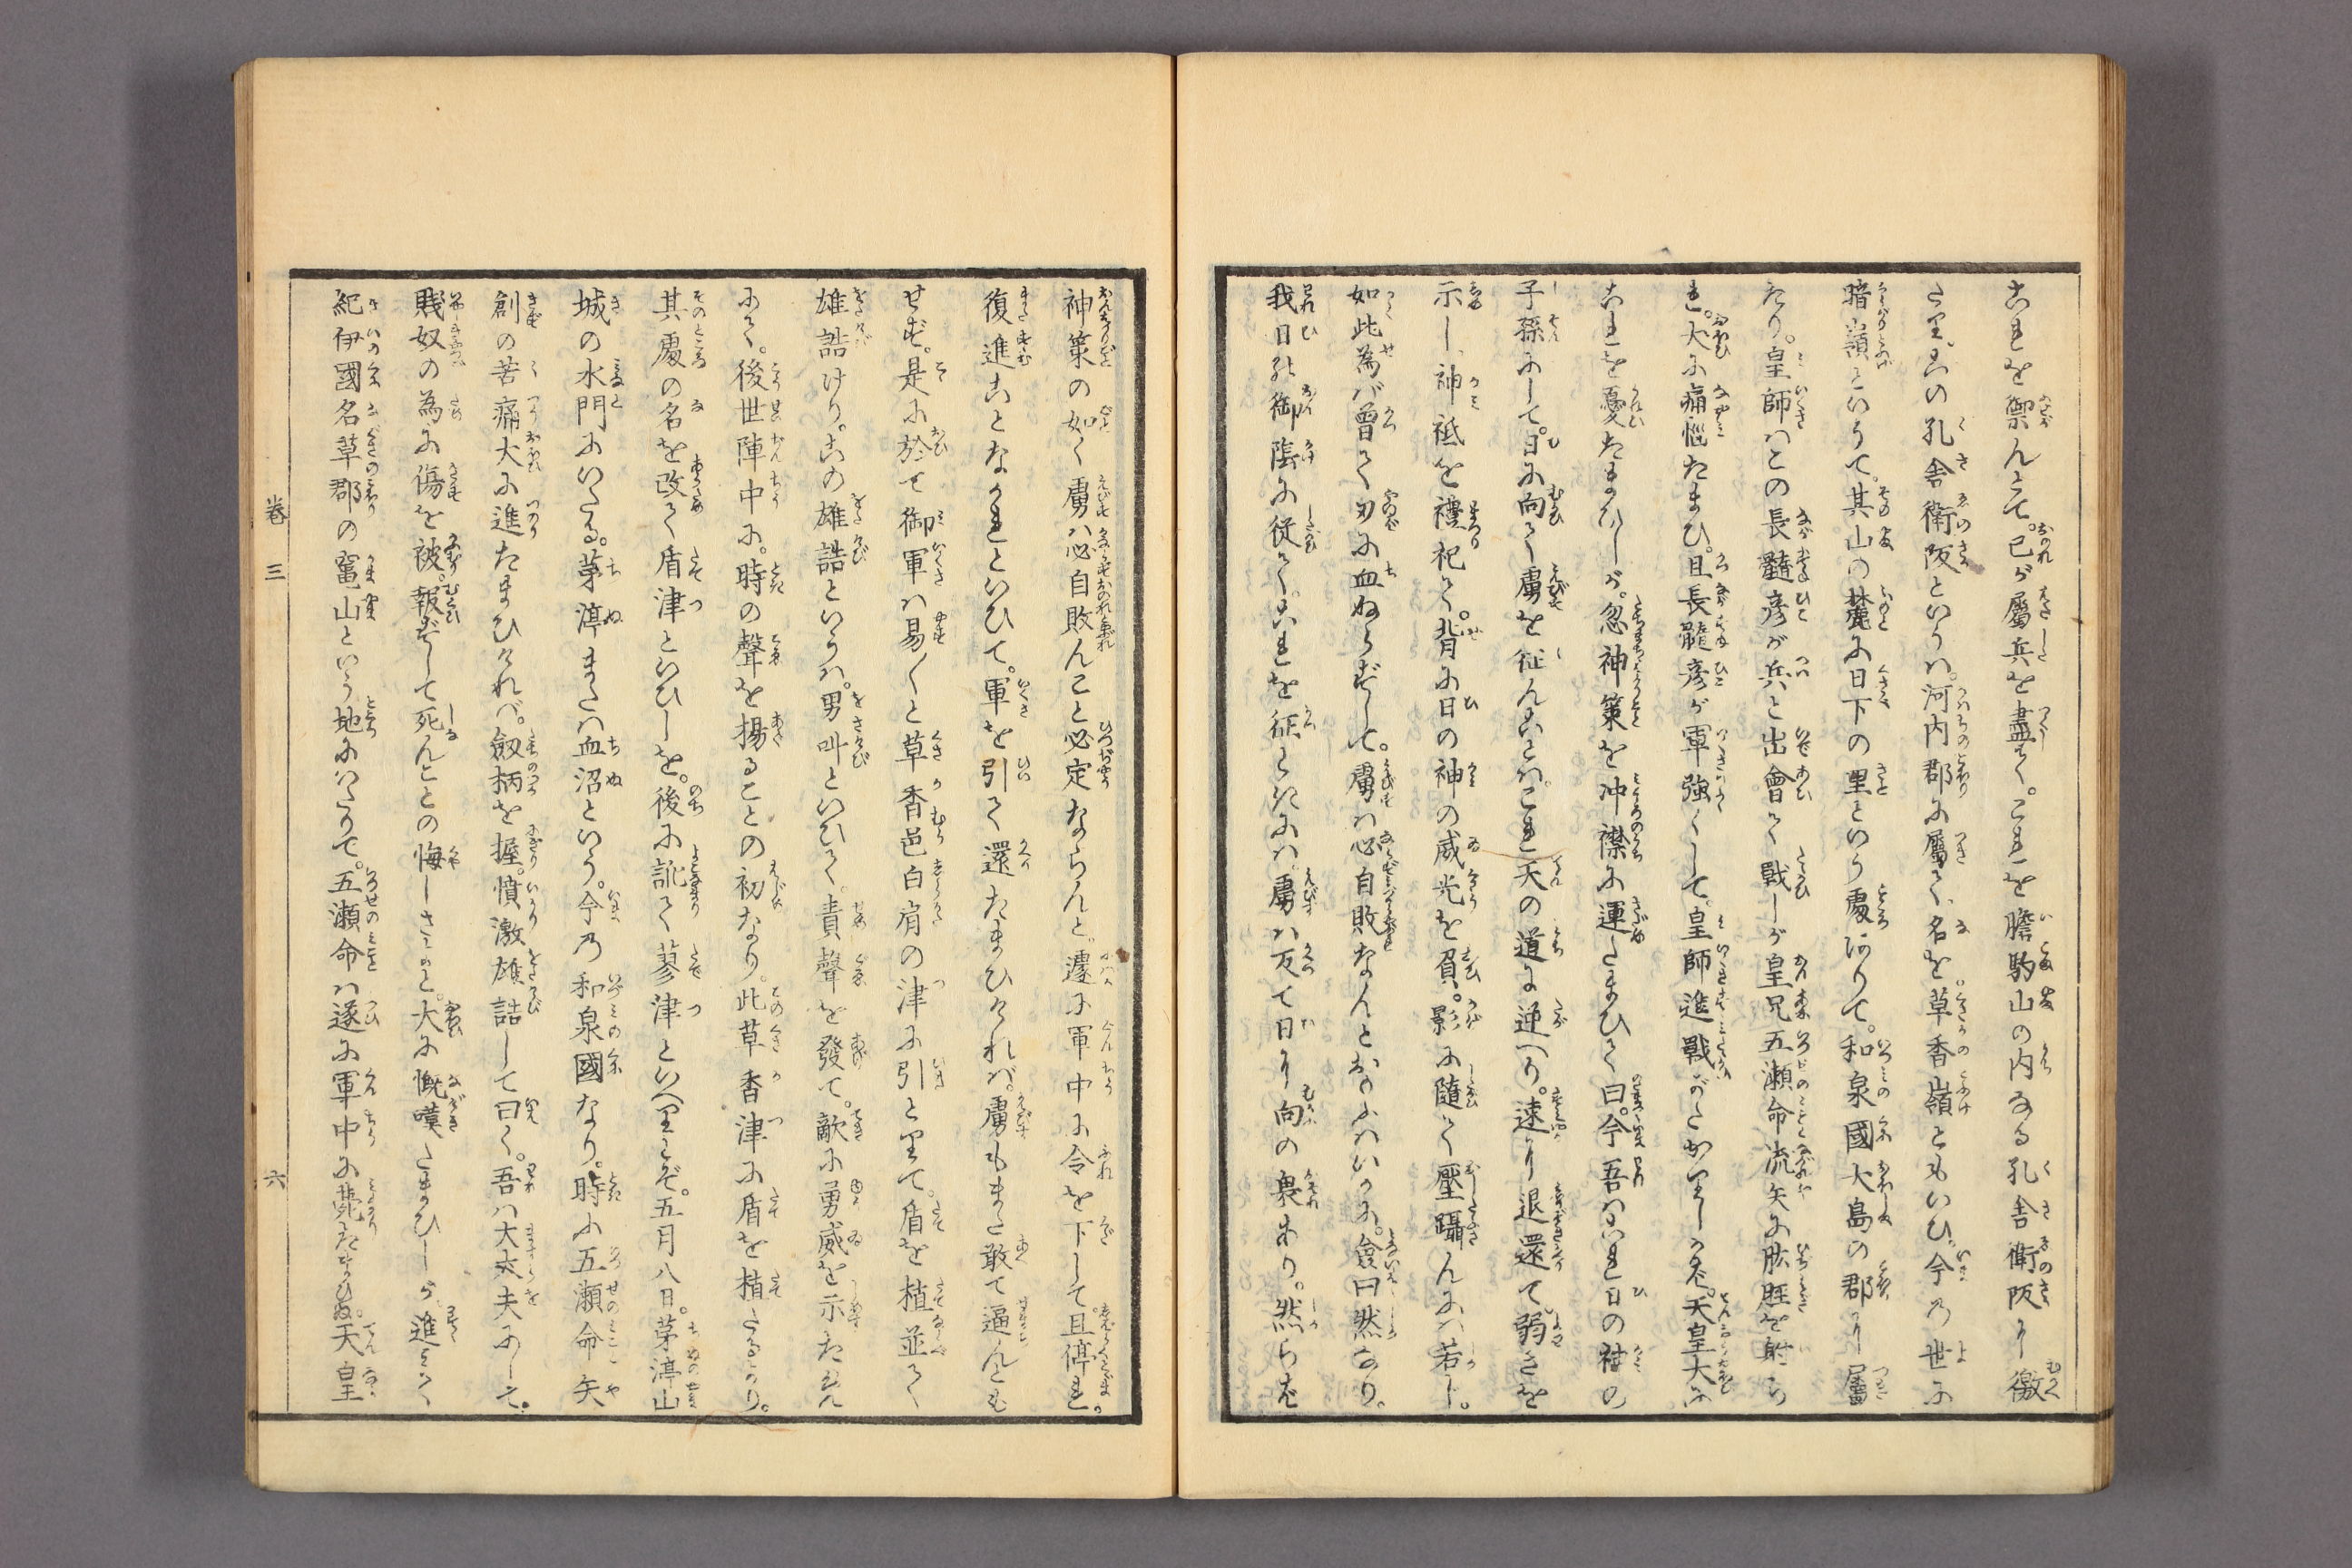 これを禦んとて。己が屬兵を盡して。これを膽駒山の内なる孔舎衛阪に徼
たり。この孔舎衛阪といふハ。河内郡に屬て。名を草香嶺ともいひ。今乃世に
暗嶺といふて。其山の麓に日下の里といふ處ありて。和泉國大島の郡に屬
たり。皇師ハこの長髓彦が兵と出會て戰しが皇兄五瀬命流矢に肱脛を射ら
れ。大に痛惱たまひ。且長髓彦が軍強くして。皇師進戰がたかりしかバ。天皇大に
これを憂たまひしが。忽神策を冲襟に運たまひて曰。今吾ハこれ日の神の
子孫にして。日に向て虜を征んことハ。これ天の道に逆へり。速に退還て弱きを
示し、神祗を禮祀て。背に日の神の威光を負。影に隨て壓躡んにハ若じ。
如此為バ曾て刃に血ぬらずして。虜ハ必自敗なんとおもふハいかに。僉曰然なり。
我日の御陰に從て。これを征ときにハ。虜ハ反て日に向の裏あり。然らば
神策の如く虜ハ必自敗んこと必定ならんと。遽に軍中に令を下して且停れ。
復進ことなかれといひて。軍を引て還たまひければ。虜もまた敢て逼んとも
せず。是に於て御軍ハ易くと草香邑白肩の津に引とりて。盾を植並て
雄誥けり。この雄誥といふハ。男叫といひて。責聲を發て。敵に勇威を示たるん
にて。後世陣中に。時の聲を揚ることの初なり。此草香津に盾を植たるより。
其處の名を改て盾津といひしを。後に訛て蓼津といへりとぞ。五月八日。茅渟山
城の水門にいたる。茅渟またハ血沼といふ。今乃和泉國なり。時に五瀬命矢
創の苦痛大に進たまひければ。劔柄を握。憤激雄詰して曰く。吾ハ大丈夫にして。
賎奴の為に傷を被。報ずして死んことの悔しさよと。大に慨嘆たまひしが。進ミて
紀伊國名草郡の竃山といふ地にいたりて。五瀬命ハ遂に軍中に薨たまひぬ。天皇
卷三
六